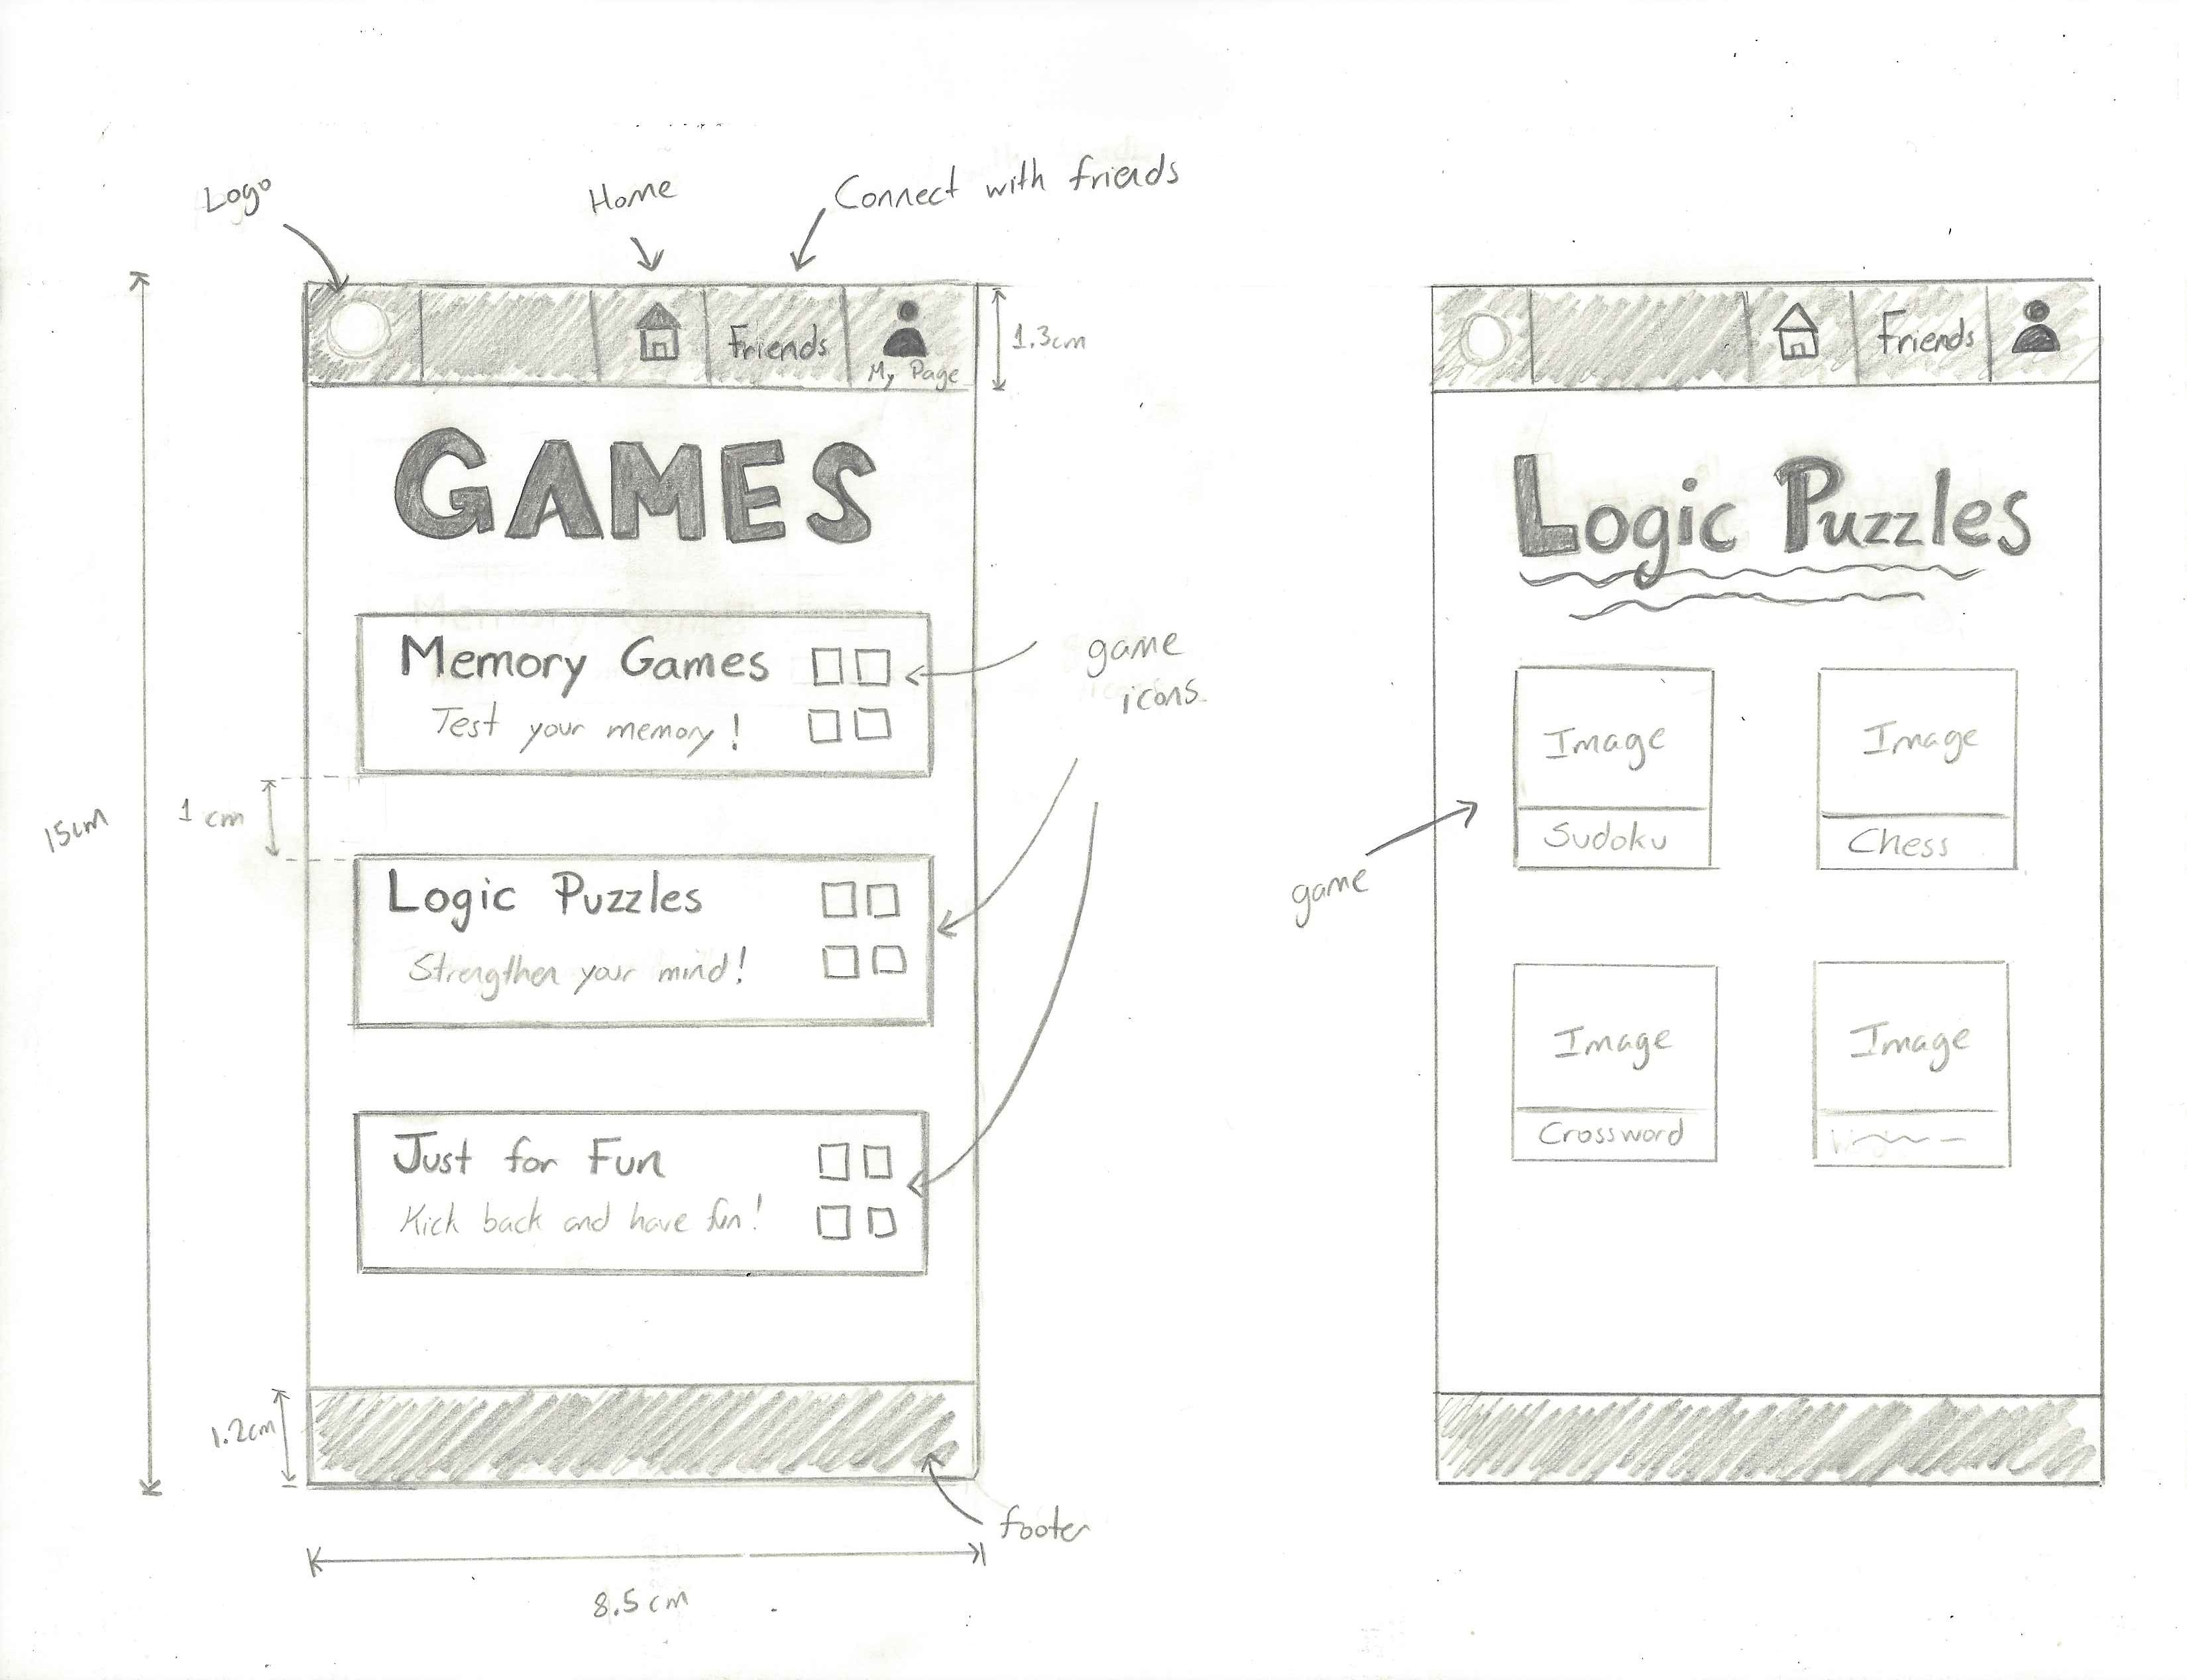 Logo
Home
Connect with friends
Friends
My Page
1.3cm
GAMES
Memory Games
Test your memory!
game
icons
1 cm
15cm
Logic Puzzles
Strengthen your mind!
Just for Fun
Kick back and have fun!
1.2cm
footer
8.5cm
Friends
Logic Puzzles
Image
Image
Sudoku
Chess
game
Image
Image
Crossword